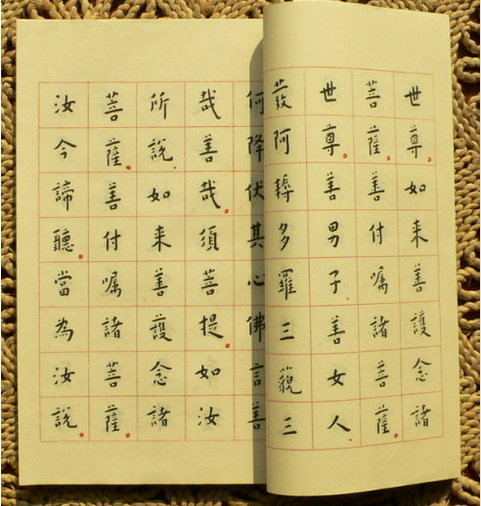 世尊如来善護念諸
菩薩善付嘱諸菩薩
世尊善男子善女人
發阿耨多羅三藐三
何降伏其心佛言善
哉善哉須菩提如汝
所說如来善護念諸
菩薩善付嘱諸菩薩
汝今諦聽當為汝說